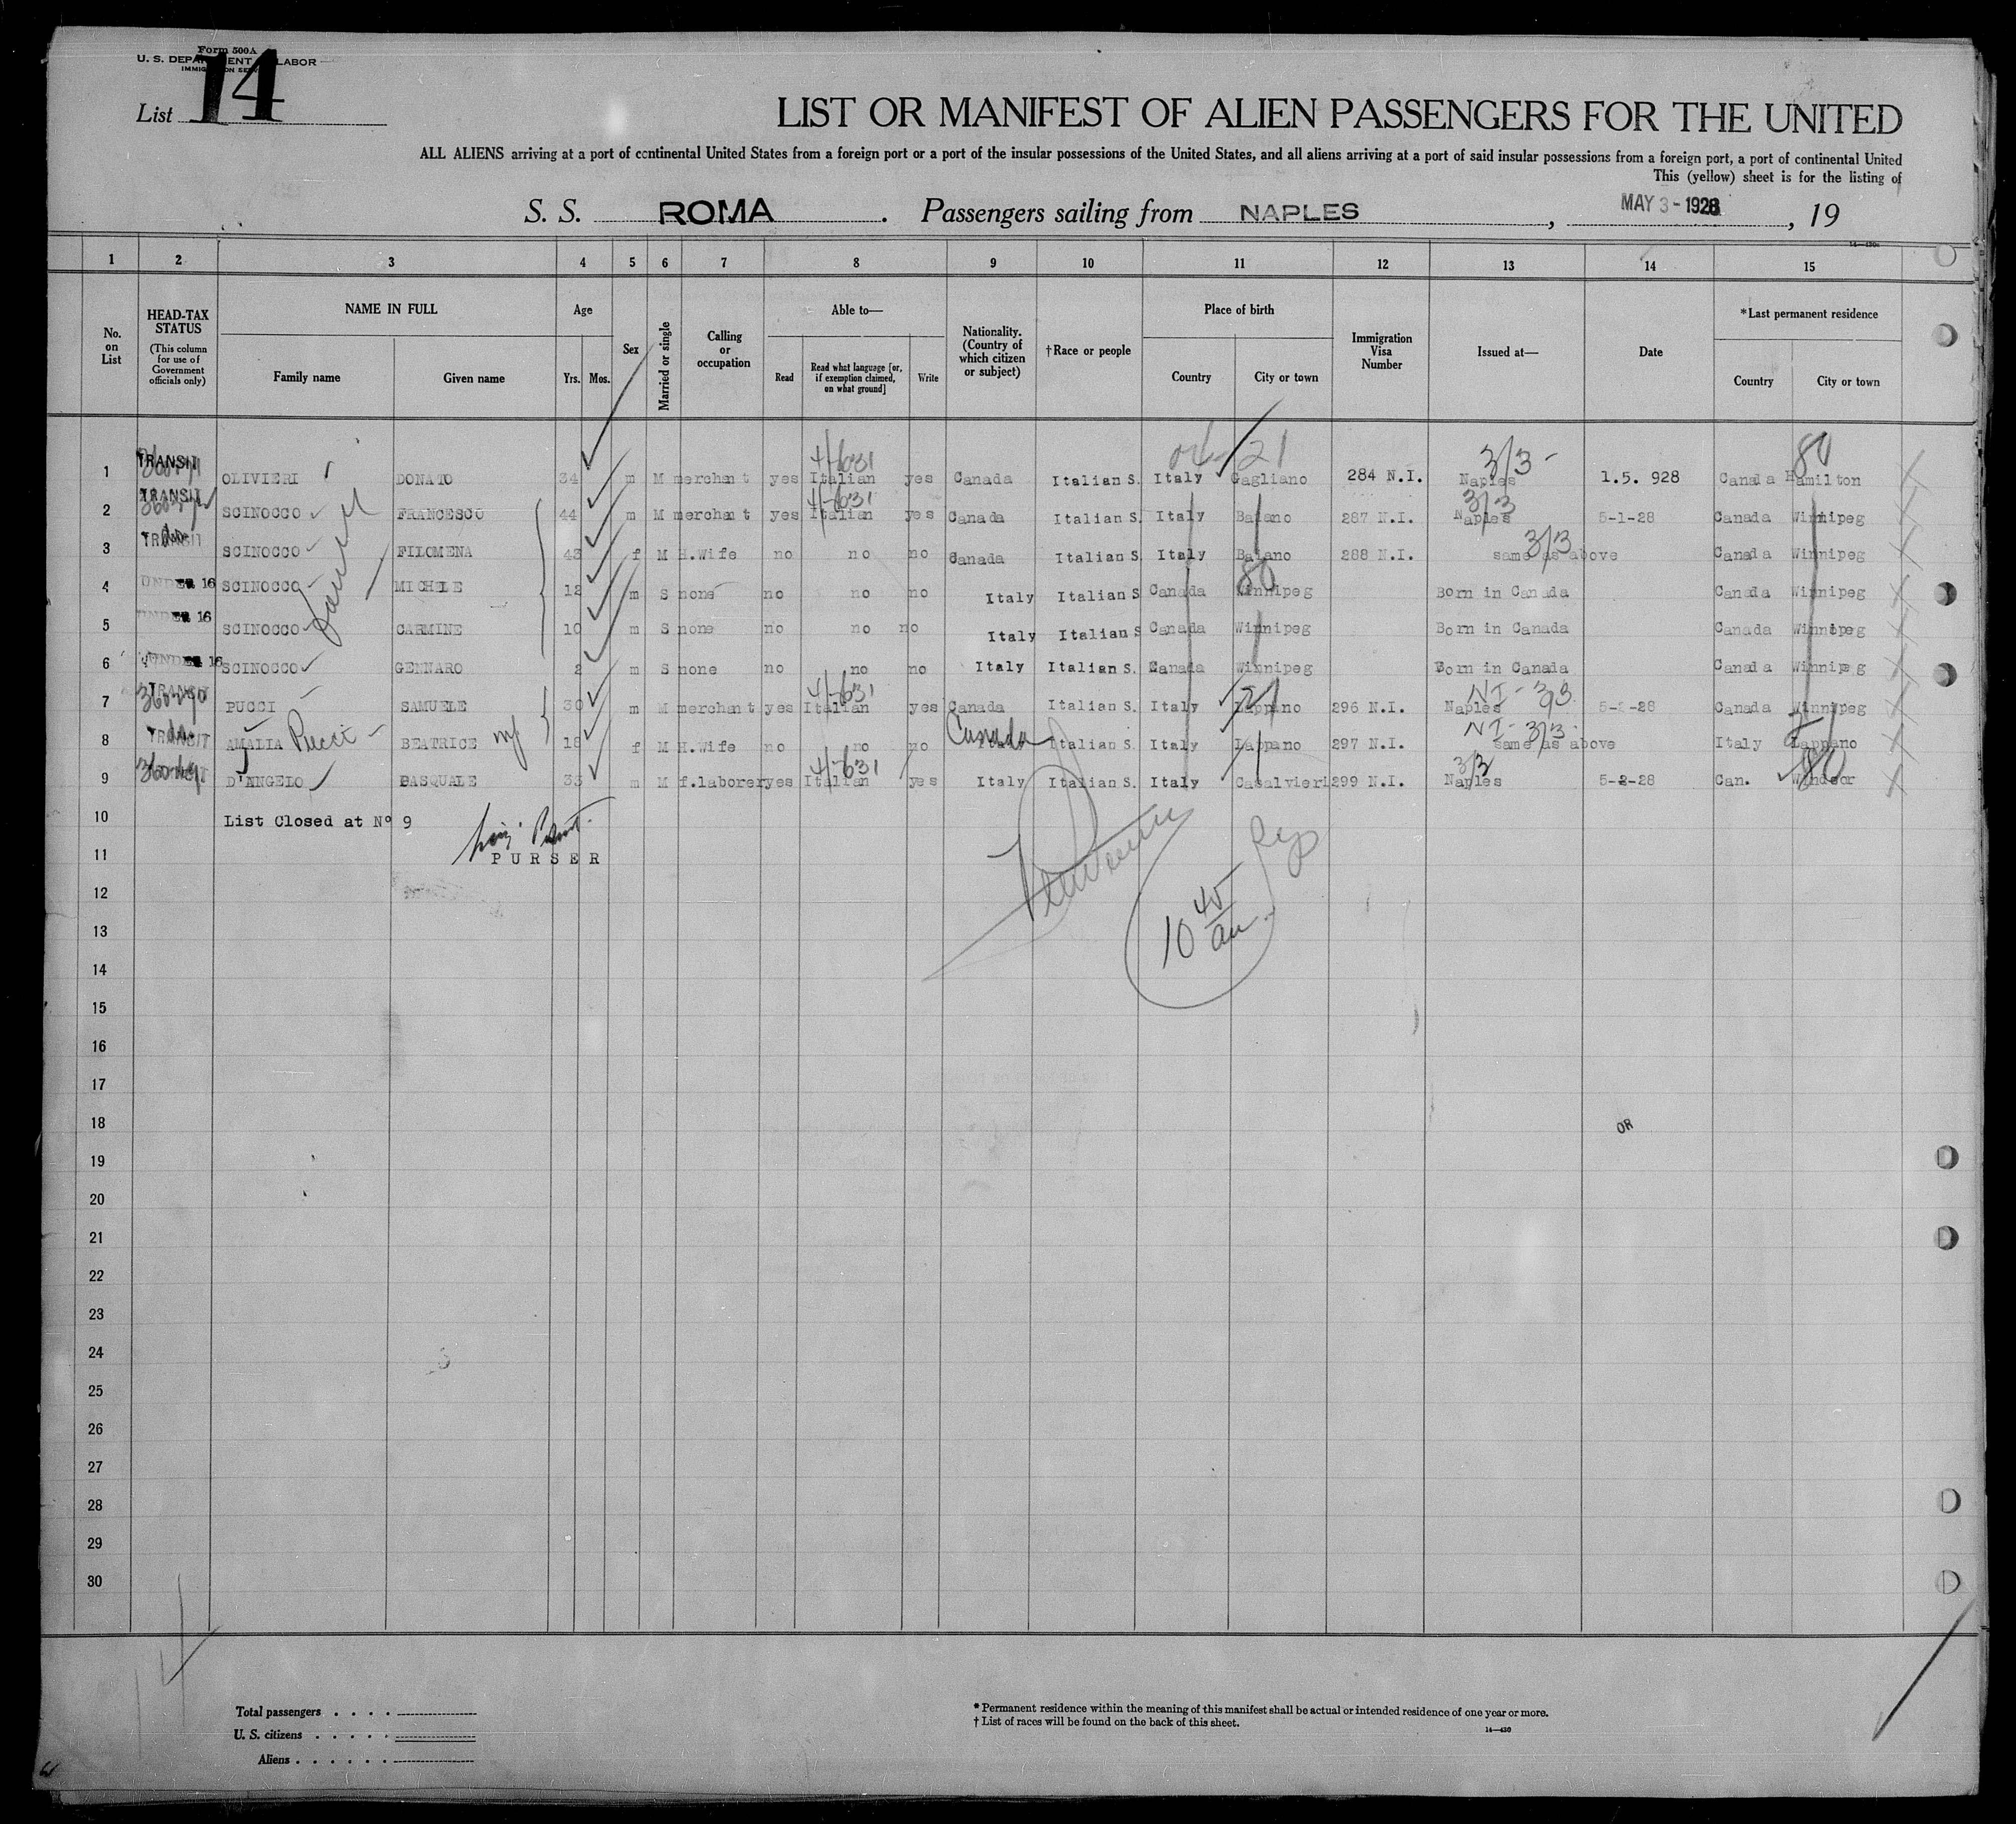 Form 500A
U. S. DEPARTMENT OF LABOR
IMMIGRATION SERVICE
List 14
LIST OR MANIFEST OF ALIEN PASSENGERS FOR THE UNITED
ALL ALIENS arriving at a port of continental United States from a foreign port or a port of the insular possessions of the United States, and all aliens arriving at a port of said insular possessions from a foreign port, a port of continental United
This (yellow) sheet is for the listing of
S. S. ROMA. Passengers sailing from NAPLES, MAY 3-1928, 19
14—430
1 2 3 4 5 6 7 8 9 10 11 12 13 14 15
No. on List
HEAD-TAX STATUS
(This column for use of Government officials only)
NAME IN FULL
Family name Given name
Age
Yrs. Mos.
Sex
Married or single
Calling or occupation
Able to—
Read
Read what language [or, if exemption claimed, on what ground]
Write
Nationality. (Country of which citizen or subject)
†Race or people
Place of birth
Country City or town
Immigration Visa Number
Issued at—
Date
*Last permanent residence
Country City or town
4/-631 21 3/3- 80
1 TRANSIT OLIVIERI DONATO 34 m M merchant yes Italian yes Canada Italian S. Italy Gagliano 284 N.I. Naples 1.5. 928 Canada Hamilton
4/-631 3/3
2 TRANSIT SCINOCCO FRANCESCO 44 m M merchant yes Italian yes Canada Italian S. Italy Baiano 287 N.I. Naples 5-1-28 Canada Winnipeg
3/3
3 TRANSIT SCINOCCO FILOMENA 43 f M H.Wife no no no Canada Italian S. Italy Baiano 288 N.I. same as above Canada Winnipeg
80
4 UNDER 16 SCINOCCO MICHELE 12 m S none no no no Italy Italian S Canada Winnipeg Born in Canada Canada Winnipeg
5 UNDER 16 SCINOCCO CARMINE 10 m S none no no no Italy Italian S Canada Winnipeg Born in Canada Canada Winnipeg
6 UNDER 16 SCINOCCO GENNARO 2 m S none no no no Italy Italian S. Canada Winnipeg Born in Canada Canada Winnipeg
4/-631 21 NI-3/3
7 TRANSIT PUCCI SAMUELE 30 m M merchant yes Italian yes Canada Italian S. Italy Lappano 296 N.I. Naples 5-2-28 Canada Winnipeg
NI-3/3 21
8 TRANSIT AMALIA Pucci BEATRICE 18 f M H.Wife no no no Canada Italian S. Italy Lappano 297 N.I. same as above Italy Lappano
4/-631 3/3 80
9 D'ANGELO PASQUALE 33 m M f.laborer yes Italian yes Italy Italian S. Italy Casalvieri 299 N.I. Naples 5-2-28 Can. Windsor
10 List Closed at No 9
11 PURSER
12
10 45 am
13
14
15
16
17
18
OR
19
20
21
22
23
24
25
26
27
28
29
30
14
Total passengers
U. S. citizens
Aliens
* Permanent residence within the meaning of this manifest shall be actual or intended residence of one year or more.
† List of races will be found on the back of this sheet.
14—430